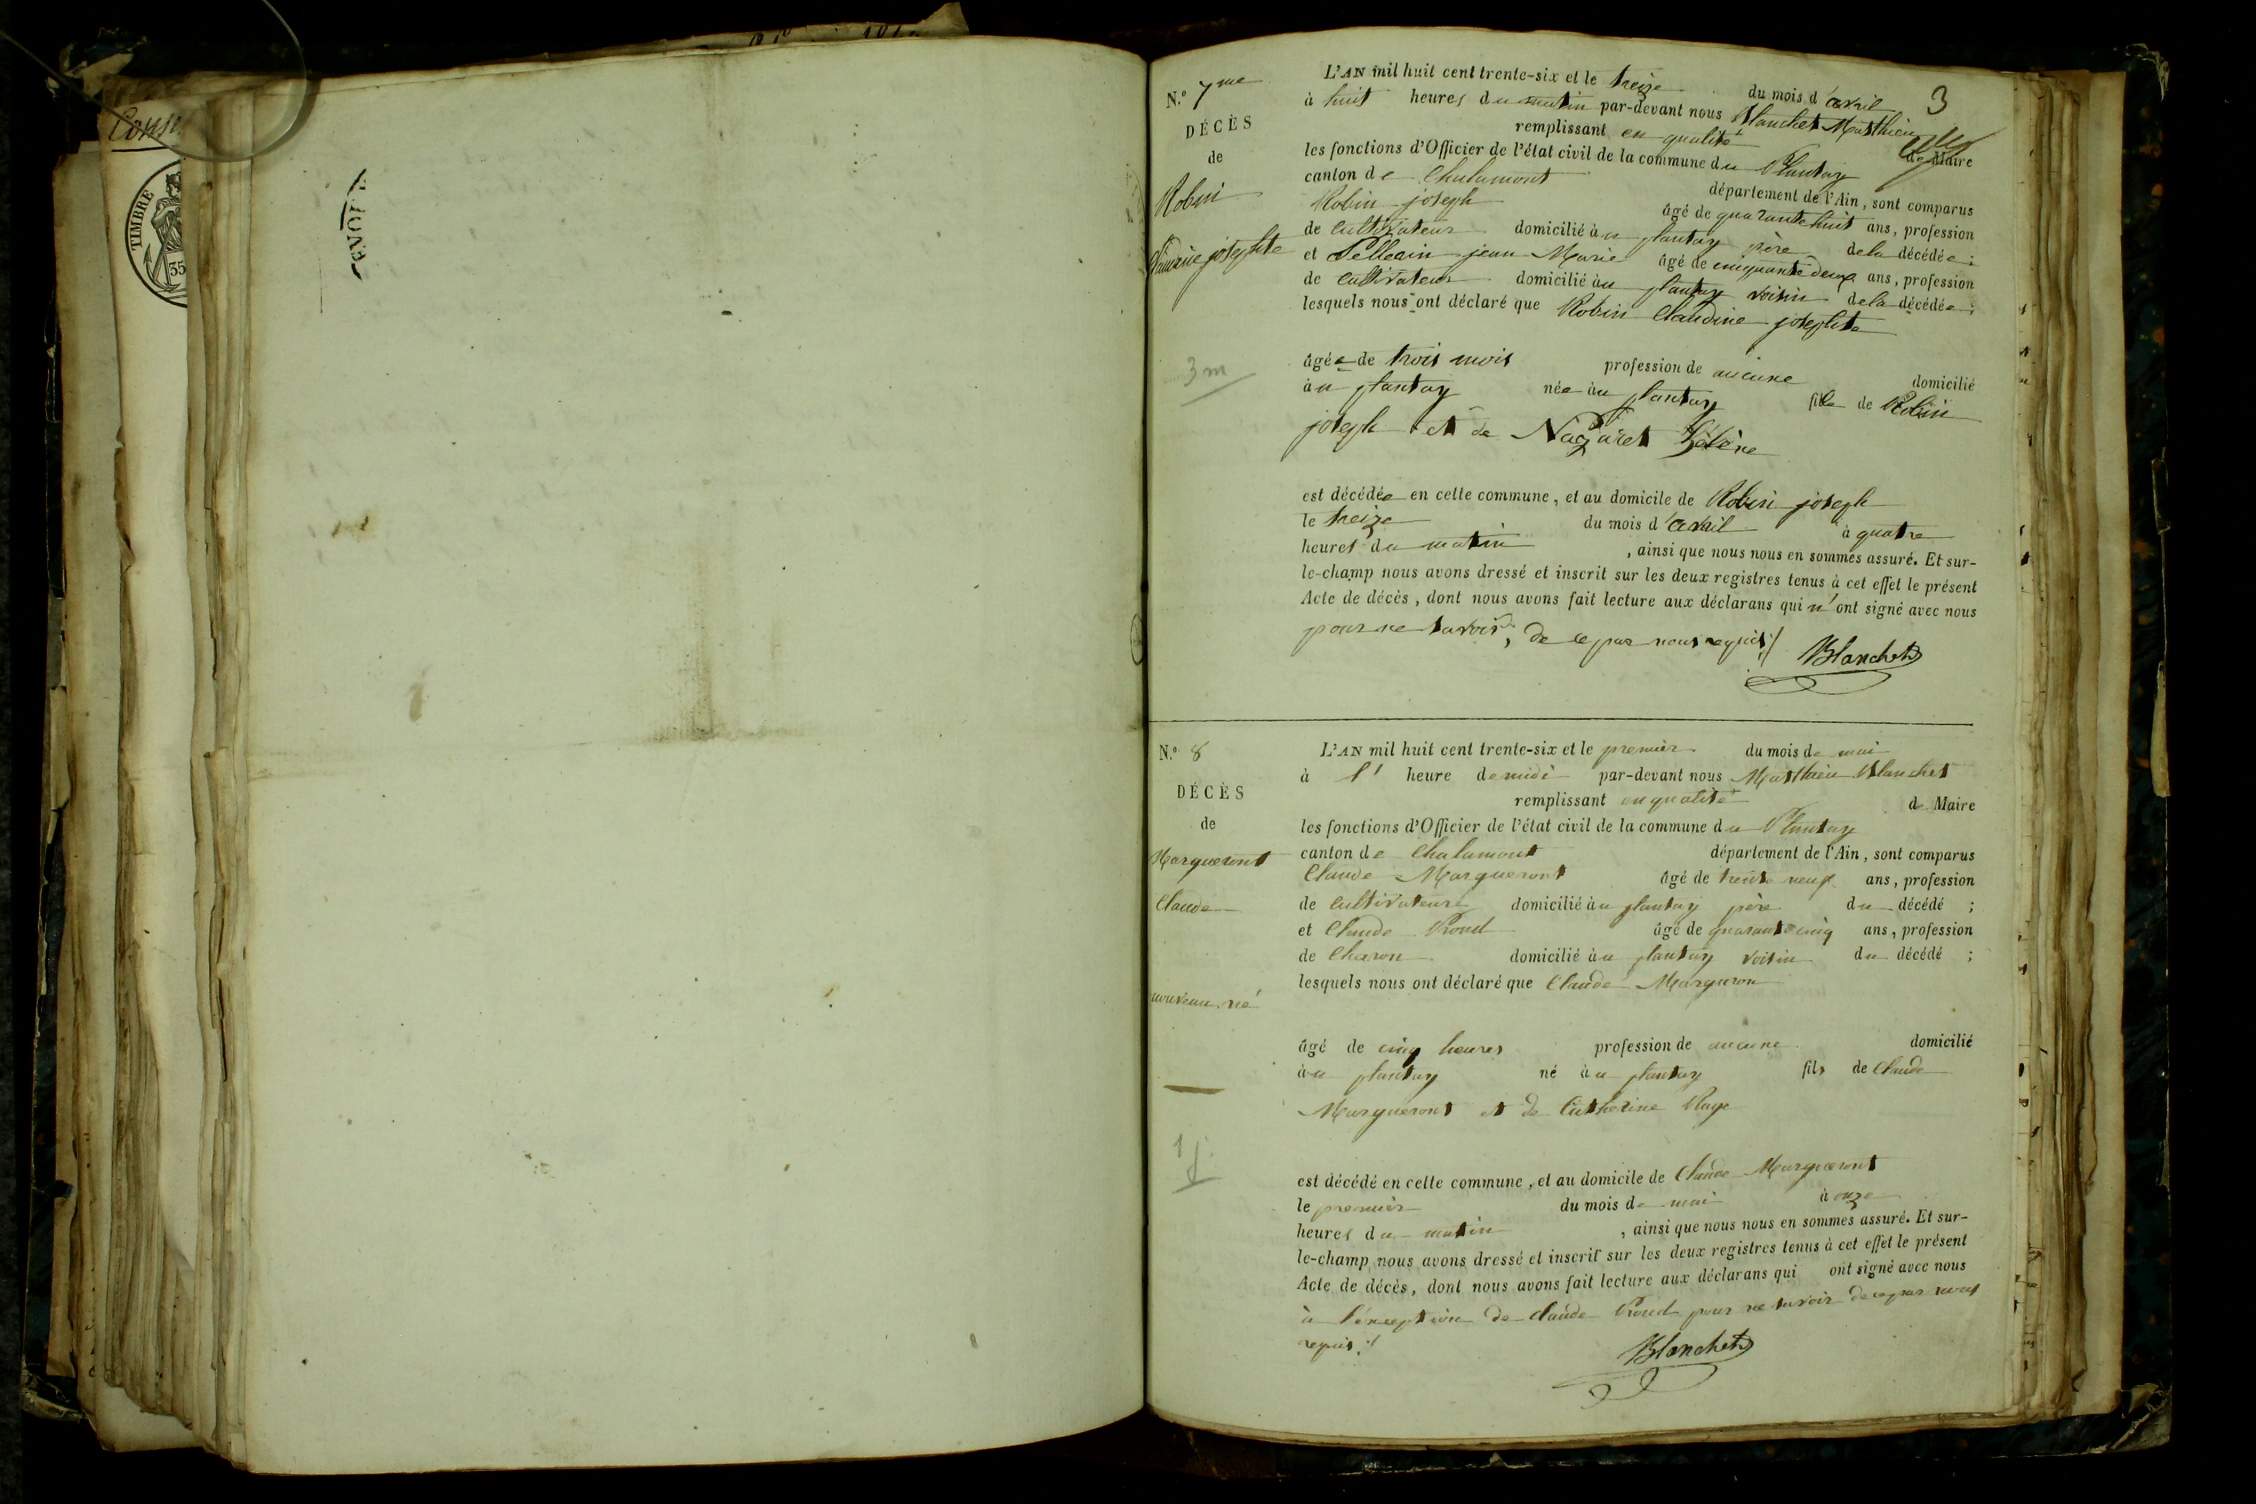 Conse
TIMBRE
35
3
N.º 7me
DÉCÈS
de
Robin
Claudine josephte
3 m
L'AN mil huit cent trente-six et le treize du mois d'avril
à huit heures du matin par-devant nous Blanchet Matthieu
remplissant en qualité de Maire
les fonctions d'Officier de l'état civil de la commune du Plantay
canton de Chalamont département de l'Ain, sont comparus
Robin joseph âgé de quarante huit ans, profession
de Cultivateur domicilié au plantay père de la décédée ;
et Pellegin jean Marie âgé de cinquante deux ans, profession
de Cultivateur domicilié au plantay voisin de la décédée ;
lesquels nous ont déclaré que Robin Claudine josephte
âgée de trois mois profession de aucune domicilié
au plantay née au plantay fille de Robin
joseph et de Nazaret Hélène
est décédée en cette commune, et au domicile de Robin joseph
le treize du mois d'avril à quatre
heures du matin , ainsi que nous nous en sommes assuré. Et sur-
le-champ nous avons dressé et inscrit sur les deux registres tenus à cet effet le présent
Acte de décès, dont nous avons fait lecture aux déclarans qui n'ont signé avec nous
pour ne savoir, de ce par nous requis ./
Blanchet
N.º 8
DÉCÈS
de
Margueront
Claude
nouveau né
1 j.
L'AN mil huit cent trente-six et le premier du mois de mai
à l' heure de midi par-devant nous Matthieu Blanchet
remplissant en qualité de Maire
les fonctions d'Officier de l'état civil de la commune du Plantay
canton de Chalamont département de l'Ain, sont comparus
Claude Margueront âgé de trente neuf ans, profession
de Cultivateur domicilié au plantay père du décédé ;
et Claude Rond âgé de quarante cinq ans, profession
de Charon domicilié au plantay voisin du décédé ;
lesquels nous ont déclaré que Claude Margueron
âgé de cinq heures profession de aucune domicilié
au plantay né au plantay fils de Claude
Margueront et de Catherine Ruge
est décédé en cette commune, et au domicile de Claude Margueront
le premier du mois de mai à onze
heures du matin , ainsi que nous nous en sommes assuré. Et sur-
le-champ nous avons dressé et inscrit sur les deux registres tenus à cet effet le présent
Acte de décès, dont nous avons fait lecture aux déclarans qui ont signé avec nous
à l'éxception de Claude Rond pour ne savoir de ce par nous
requis ./
Blanchet